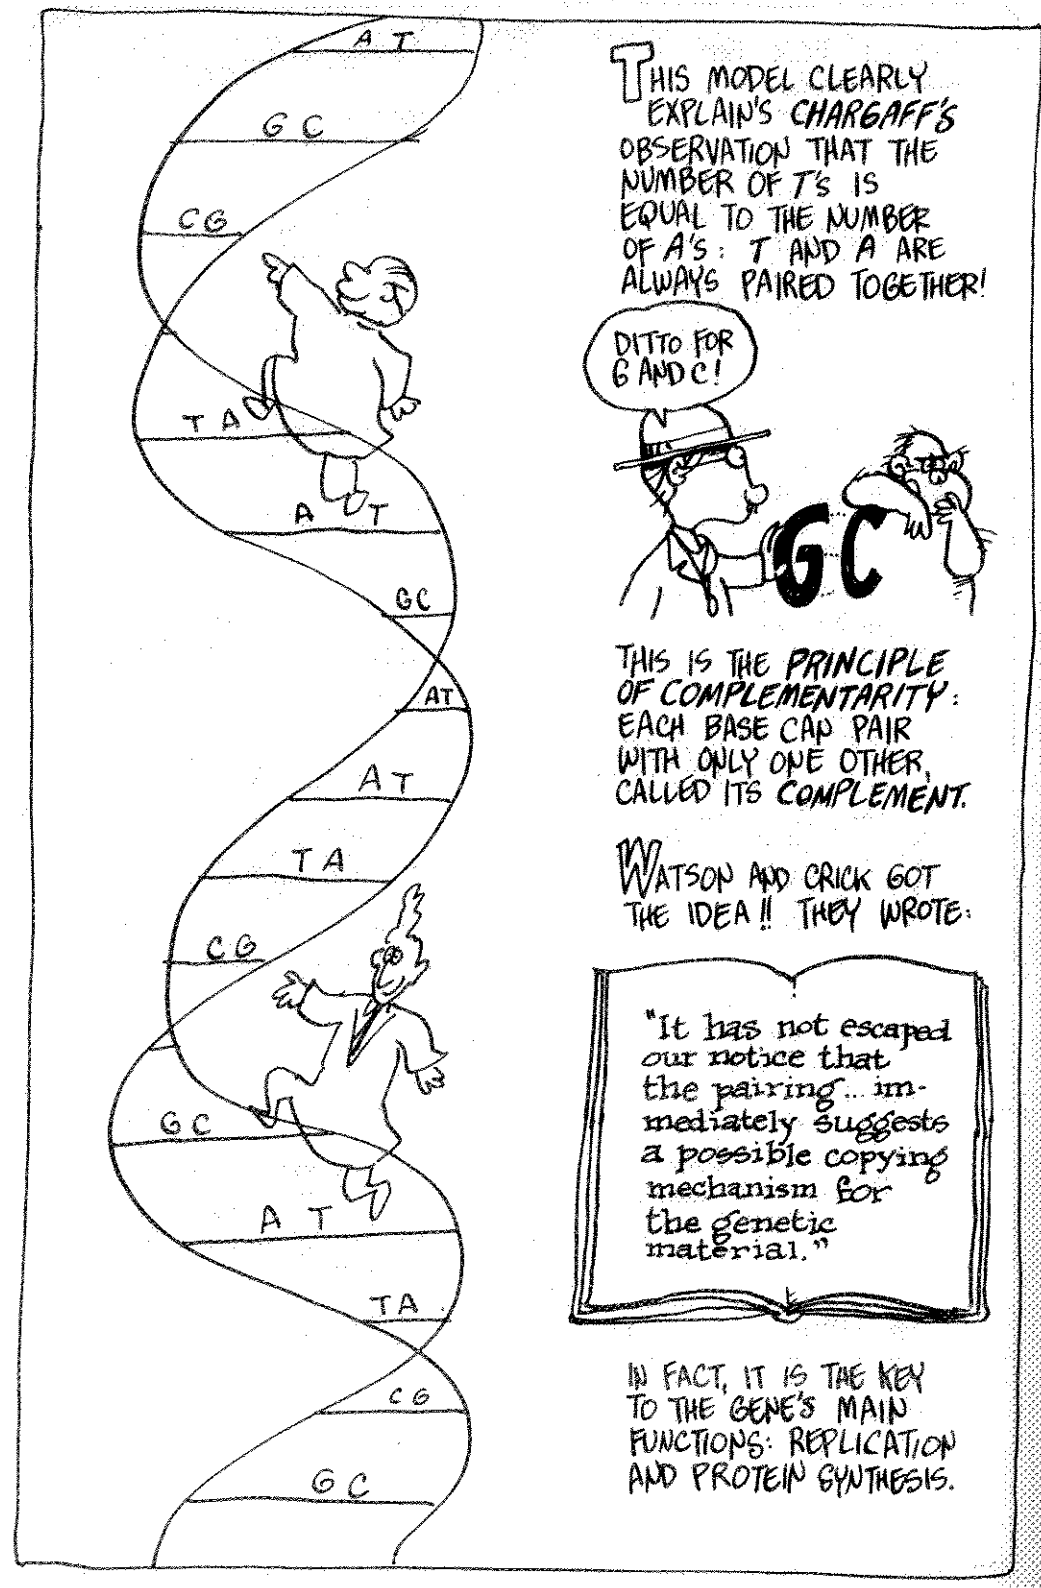 A T
G C
C G
T A
A T
G C
A T
A T
T A
C G
G C
A T
T A
C G
G C
THIS MODEL CLEARLY
EXPLAIN'S CHARGAFF'S
OBSERVATION THAT THE
NUMBER OF T'S IS
EQUAL TO THE NUMBER
OF A'S: T AND A ARE
ALWAYS PAIRED TOGETHER!
DITTO FOR
G AND C!
GC
THIS IS THE PRINCIPLE
OF COMPLEMENTARITY:
EACH BASE CAN PAIR
WITH ONLY ONE OTHER,
CALLED ITS COMPLEMENT.
WATSON AND CRICK GOT
THE IDEA!! THEY WROTE:
"It has not escaped
our notice that
the pairing... im-
mediately suggests
a possible copying
mechanism for
the genetic
material."
IN FACT, IT IS THE KEY
TO THE GENE'S MAIN
FUNCTIONS: REPLICATION
AND PROTEIN SYNTHESIS.